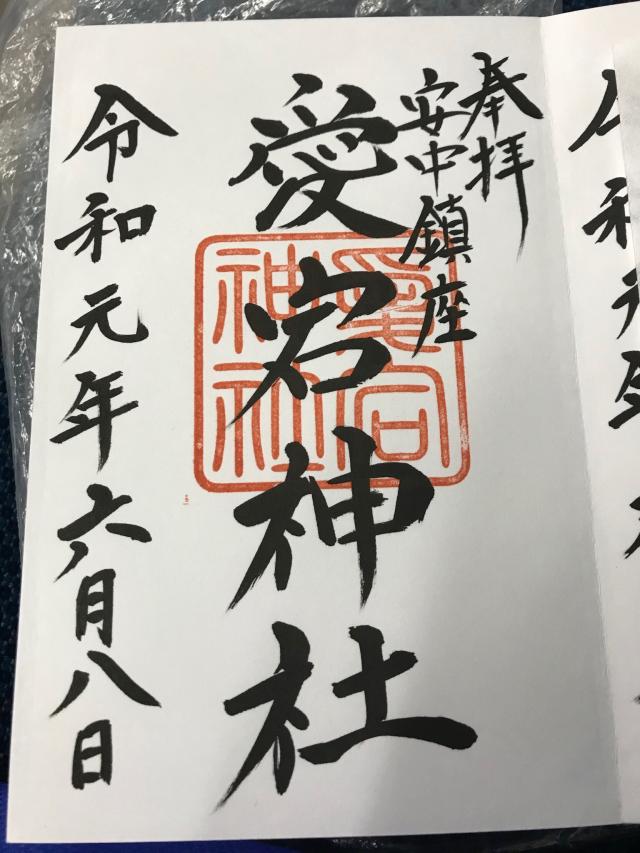 令和元年
奉拝
安中鎮座
愛宕神社
愛宕
神社
令和元年六月八日